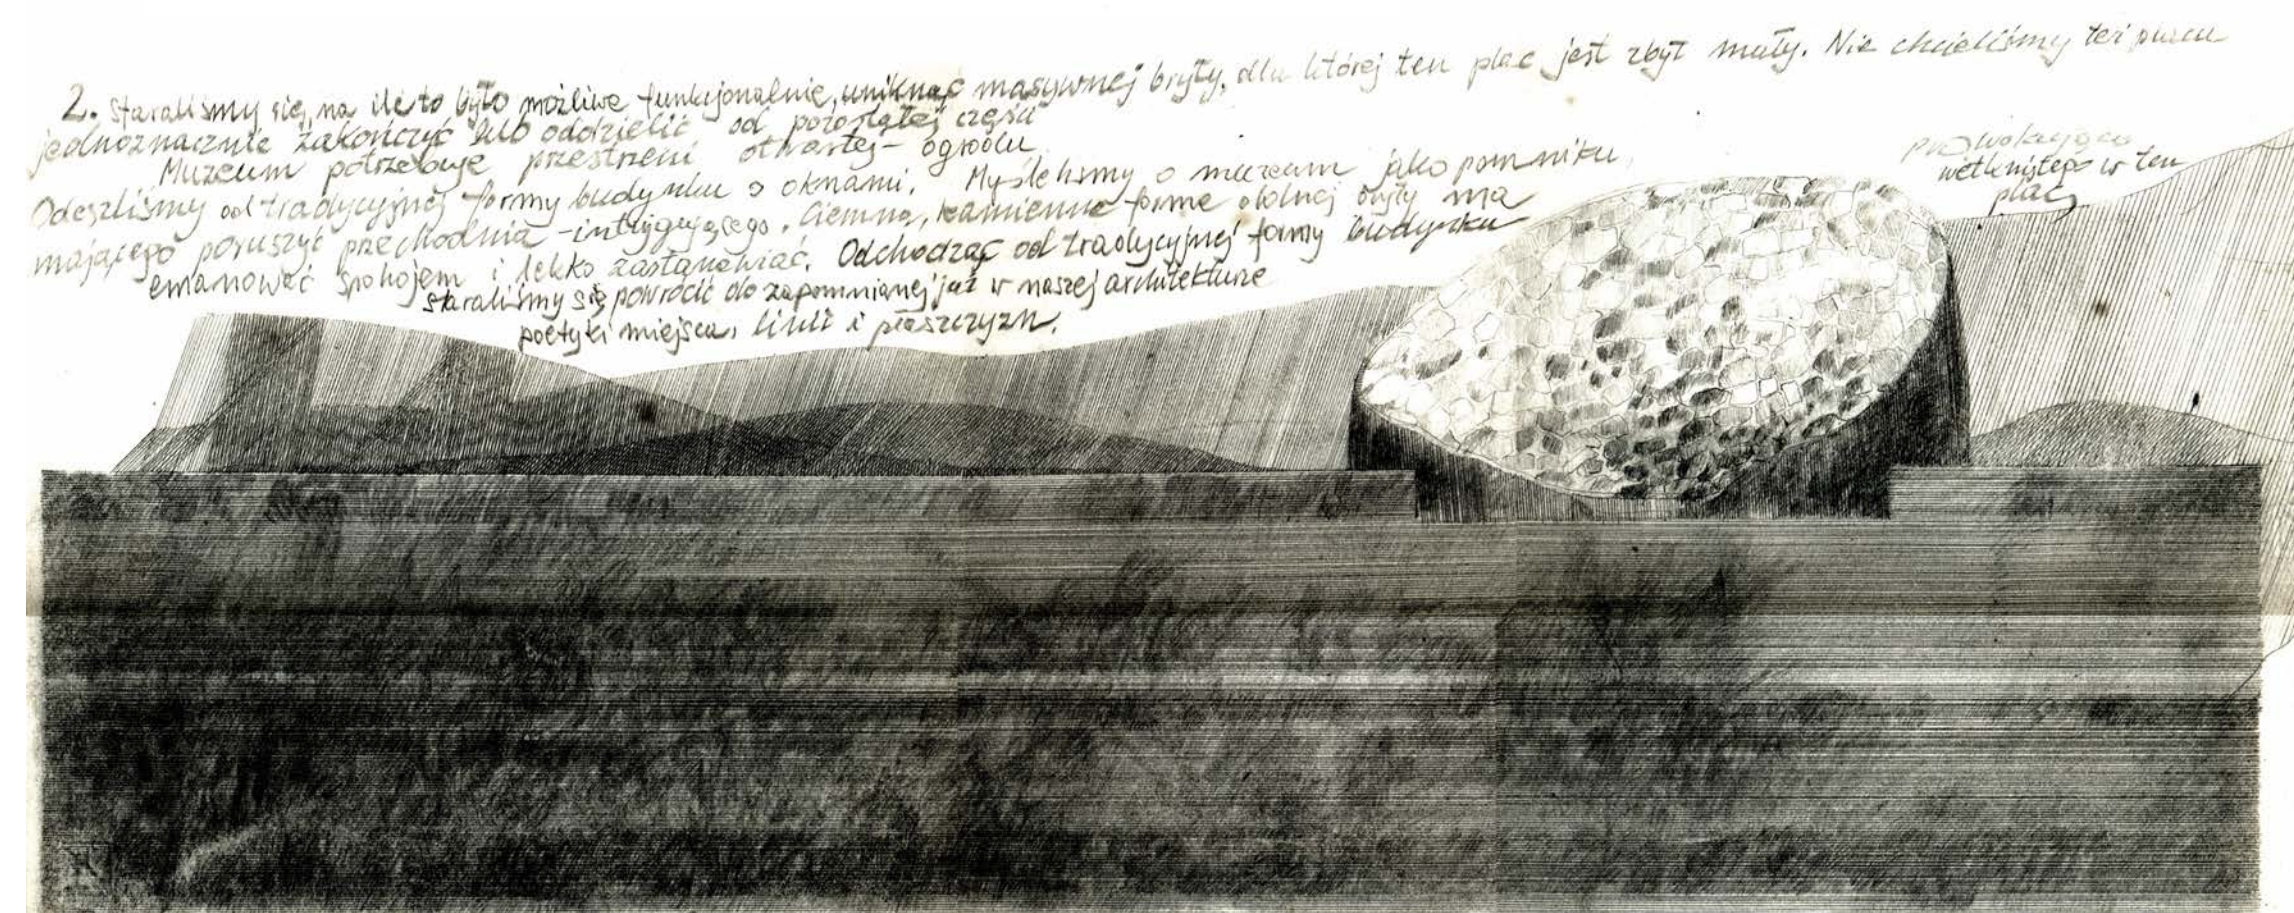 2. Staraliśmy się, na ile to było możliwe funkcjonalnie, uniknąć masywnej bryły, dla której ten plac jest zbyt mały. Nie chcieliśmy też placu
jednoznacznie zakończyć lub oddzielić od pozostałej części
Muzeum potrzebuje przestrzeni otwartej - ogrodu
Odeszliśmy od tradycyjnej formy budynku z oknami. Myśleliśmy o muzeum jako pomniku,
prowokująco
wetkniętego w ten
plac,
mającego poruszyć przechodnia - intrygującego. Ciemna, kamienna forma dolnej bryły ma
emanować spokojem i lekko zastanawiać. Odchodząc od tradycyjnej formy budynku
staraliśmy się powrócić do zapomnianej już w naszej architekturze
poetyki miejsca, linii i płaszczyzn.